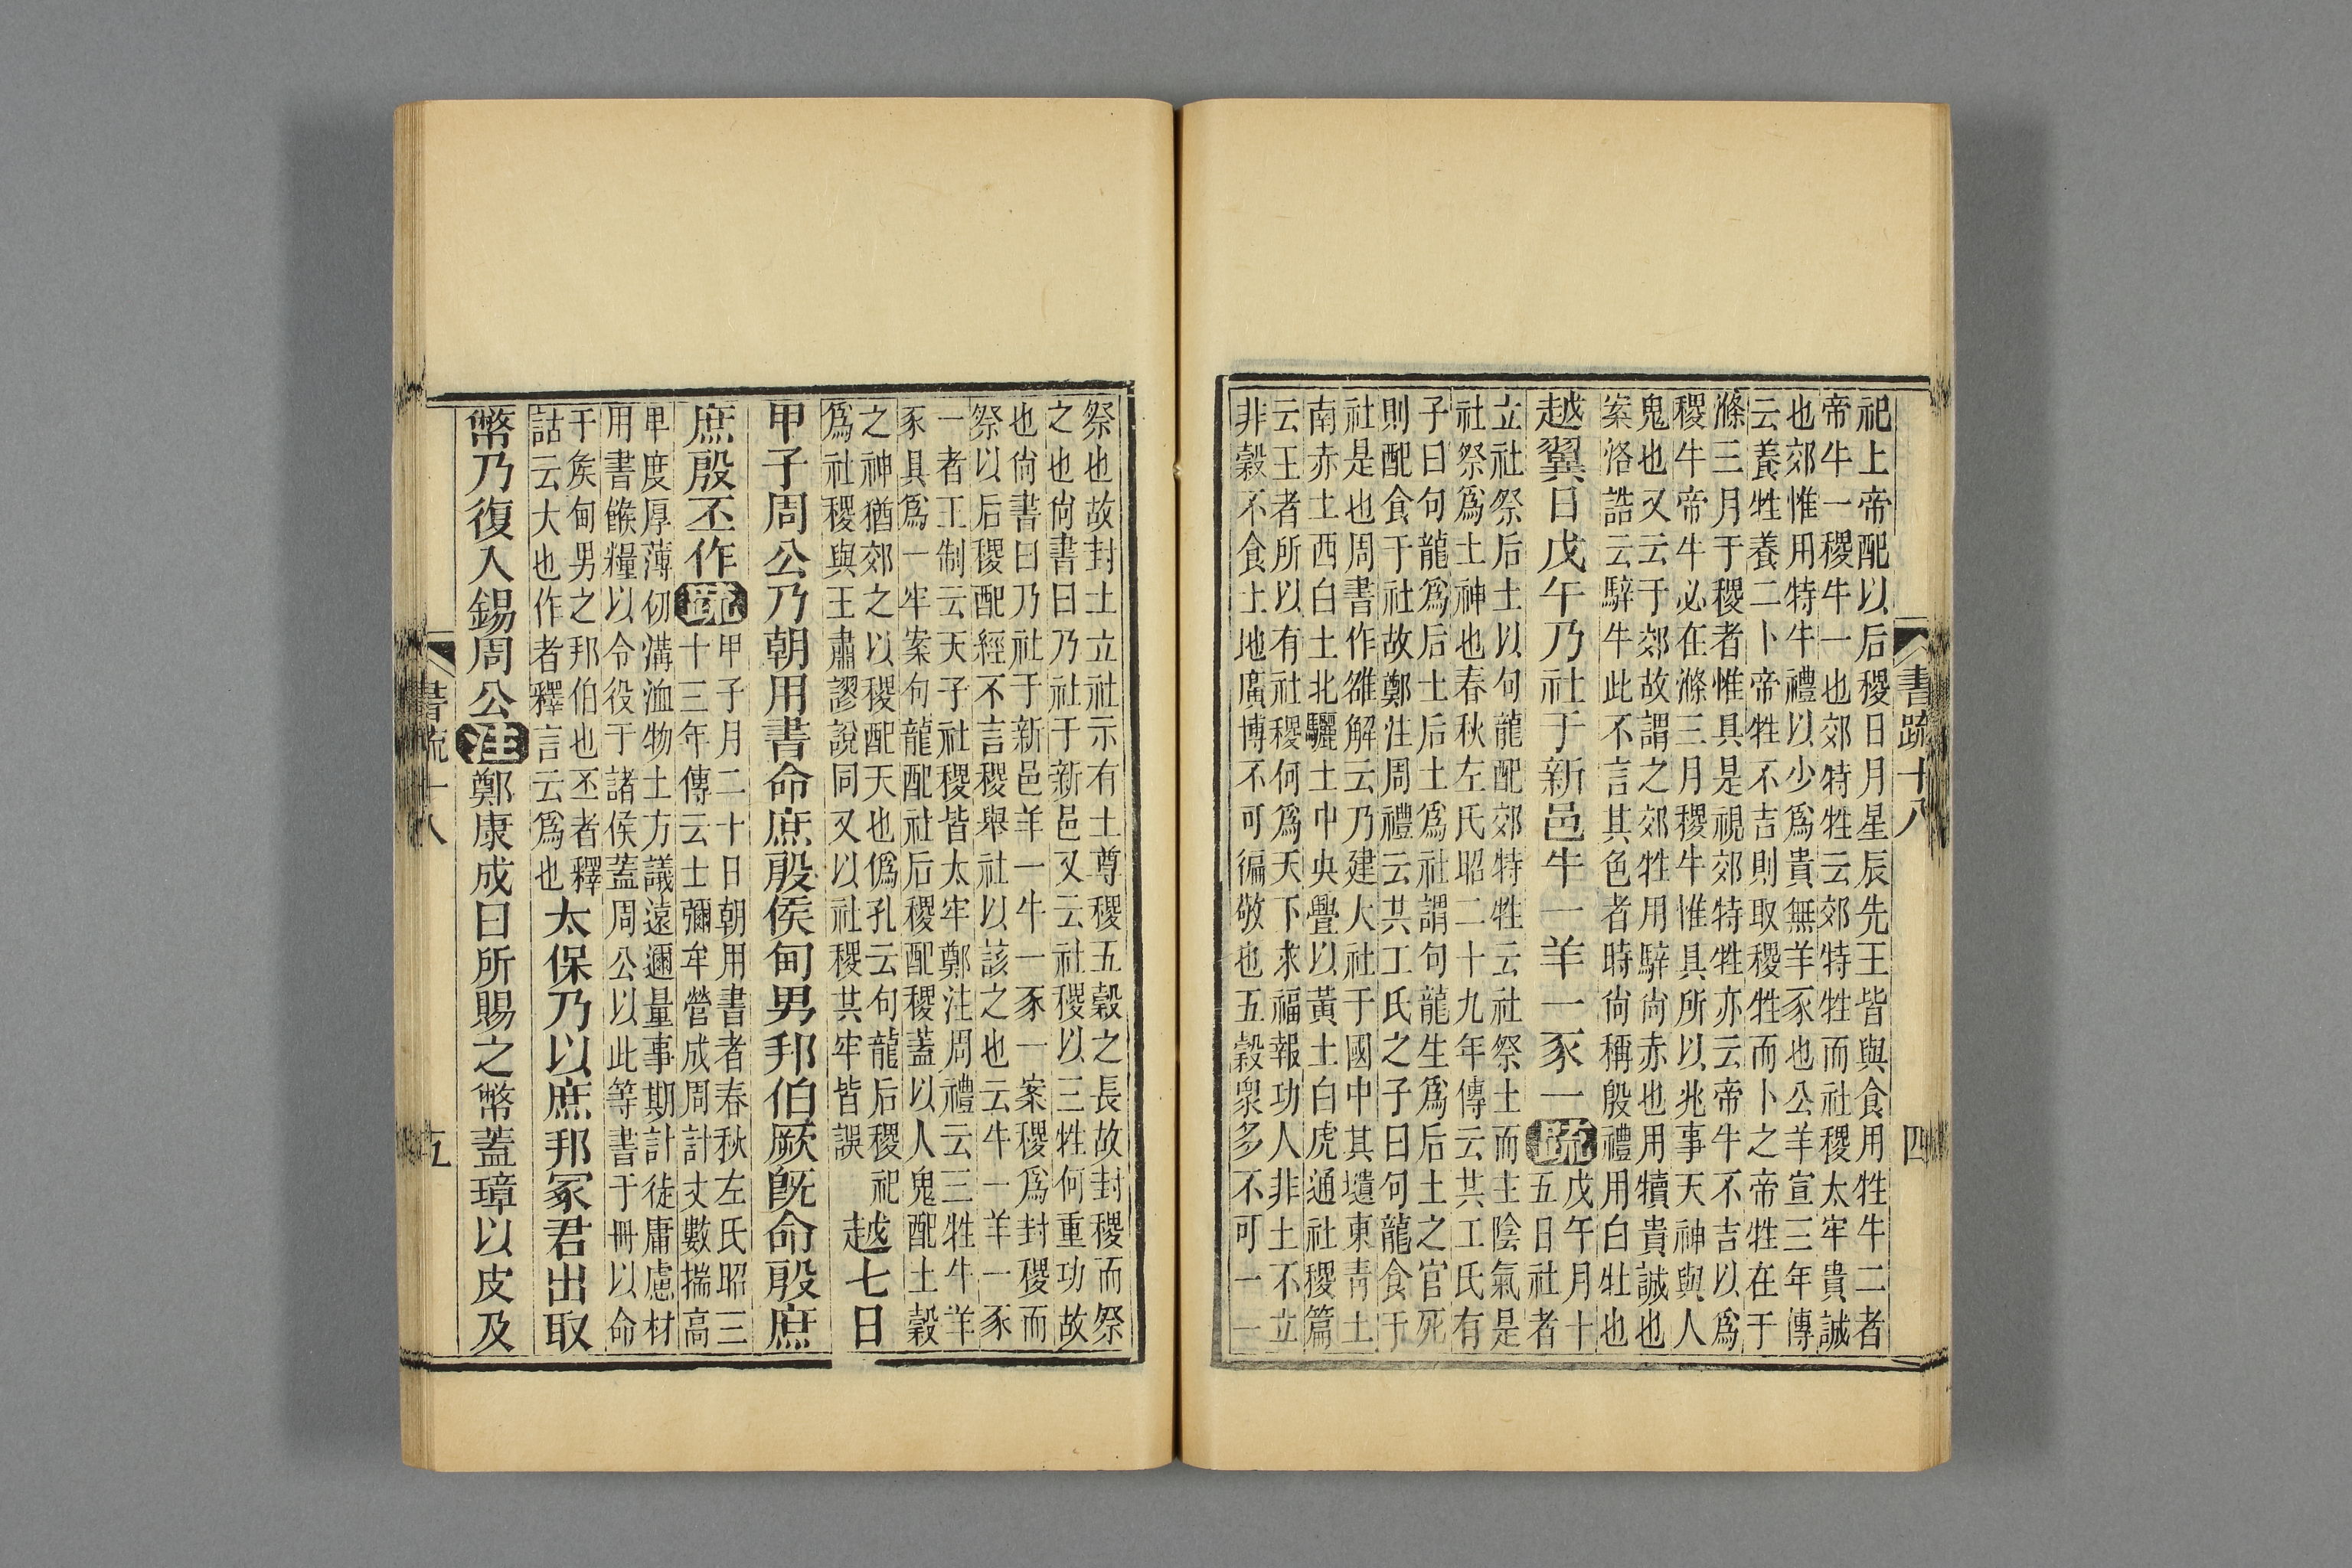 書疏十八
四
祀上帝配以后稷日月星辰先王皆與食用牲牛二者
帝牛一稷牛一也郊特牲云郊特牲而社稷太牢貴誠
也郊惟用特牛禮以少爲貴無羊豕也公羊宣三年傳
云養牲養二卜帝牲不吉則取稷牲而卜之帝牲在于
滌三月于稷者惟具是視郊特牲亦云帝牛不吉以爲
稷牛帝牛必在滌三月稷牛惟具所以兆事天神與人
鬼也又云于郊故謂之郊牲用騂尚赤也用犢貴誠也
案洛誥云騂牛此不言其色者時尚稱殷禮用白牡也
越翼日戊午乃社于新邑牛一羊一豕一疏戊午月十
五日社者
立社祭后土以句龍配郊特牲云社祭土而主陰氣是
社祭爲土神也春秋左氏昭二十九年傳云共工氏有
子曰句龍爲后土后土爲社謂句龍生爲后土之官死
則配食于社故鄭注周禮云共工氏之子曰句龍食于
社是也周書作雒解云乃建大社于國中其壝東青土
南赤土西白土北驪土中央舋以黃土白虎通社稷篇
云王者所以有社稷何爲天下求福報功人非土不立
非穀不食土地廣博不可徧敬也五穀眾多不可一一
祭也故封土立社示有土尊稷五穀之長故封稷而祭
之也尚書曰乃社于新邑又云社稷以三牲何重功故
也尚書曰乃社于新邑羊一牛一豕一案稷爲封稷而
祭以后稷配經不言稷舉社以該之也云牛一羊一豕
一者王制云天子社稷皆太牢鄭注周禮云三牲牛羊
豕具爲一牢案句龍配社后稷配稷蓋以人鬼配土穀
之神猶郊之以稷配天也僞孔云句龍后稷祀
爲社稷與王肅謬說同又以社稷共牢皆誤
越七日
甲子周公乃朝用書命庶殷侯甸男邦伯厥旣命殷庶
庶殷丕作疏甲子月二十日朝用書者春秋左氏昭三
十三年傳云士彌牟營成周計丈數揣高
卑度厚薄仞溝洫物土方議遠邇量事期計徒庸慮材
用書餱糧以令役于諸侯蓋周公以此等書于冊以命
于矦甸男之邦伯也丕者釋
詁云大也作者釋言云爲也
太保乃以庶邦冢君出取
幣乃復入錫周公注鄭康成曰所賜之幣蓋璋以皮及
書疏十八
五